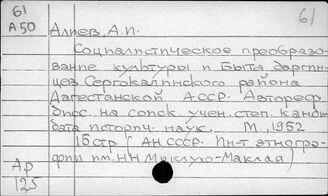 61
А50
61
Алиев, А.П.
Социалистическое преобразо-
вание культуры и быта даргин-
цев Сергокалинского района
Дагестанской АССР. Автореф.
дисс. на соиск. учен. степ. канди-
дата историч. наук. М., 1952
16стр (АН СССР. Ин-т этногра-
фии им. Н.Н Миклухо-Маклая)
Ар
125